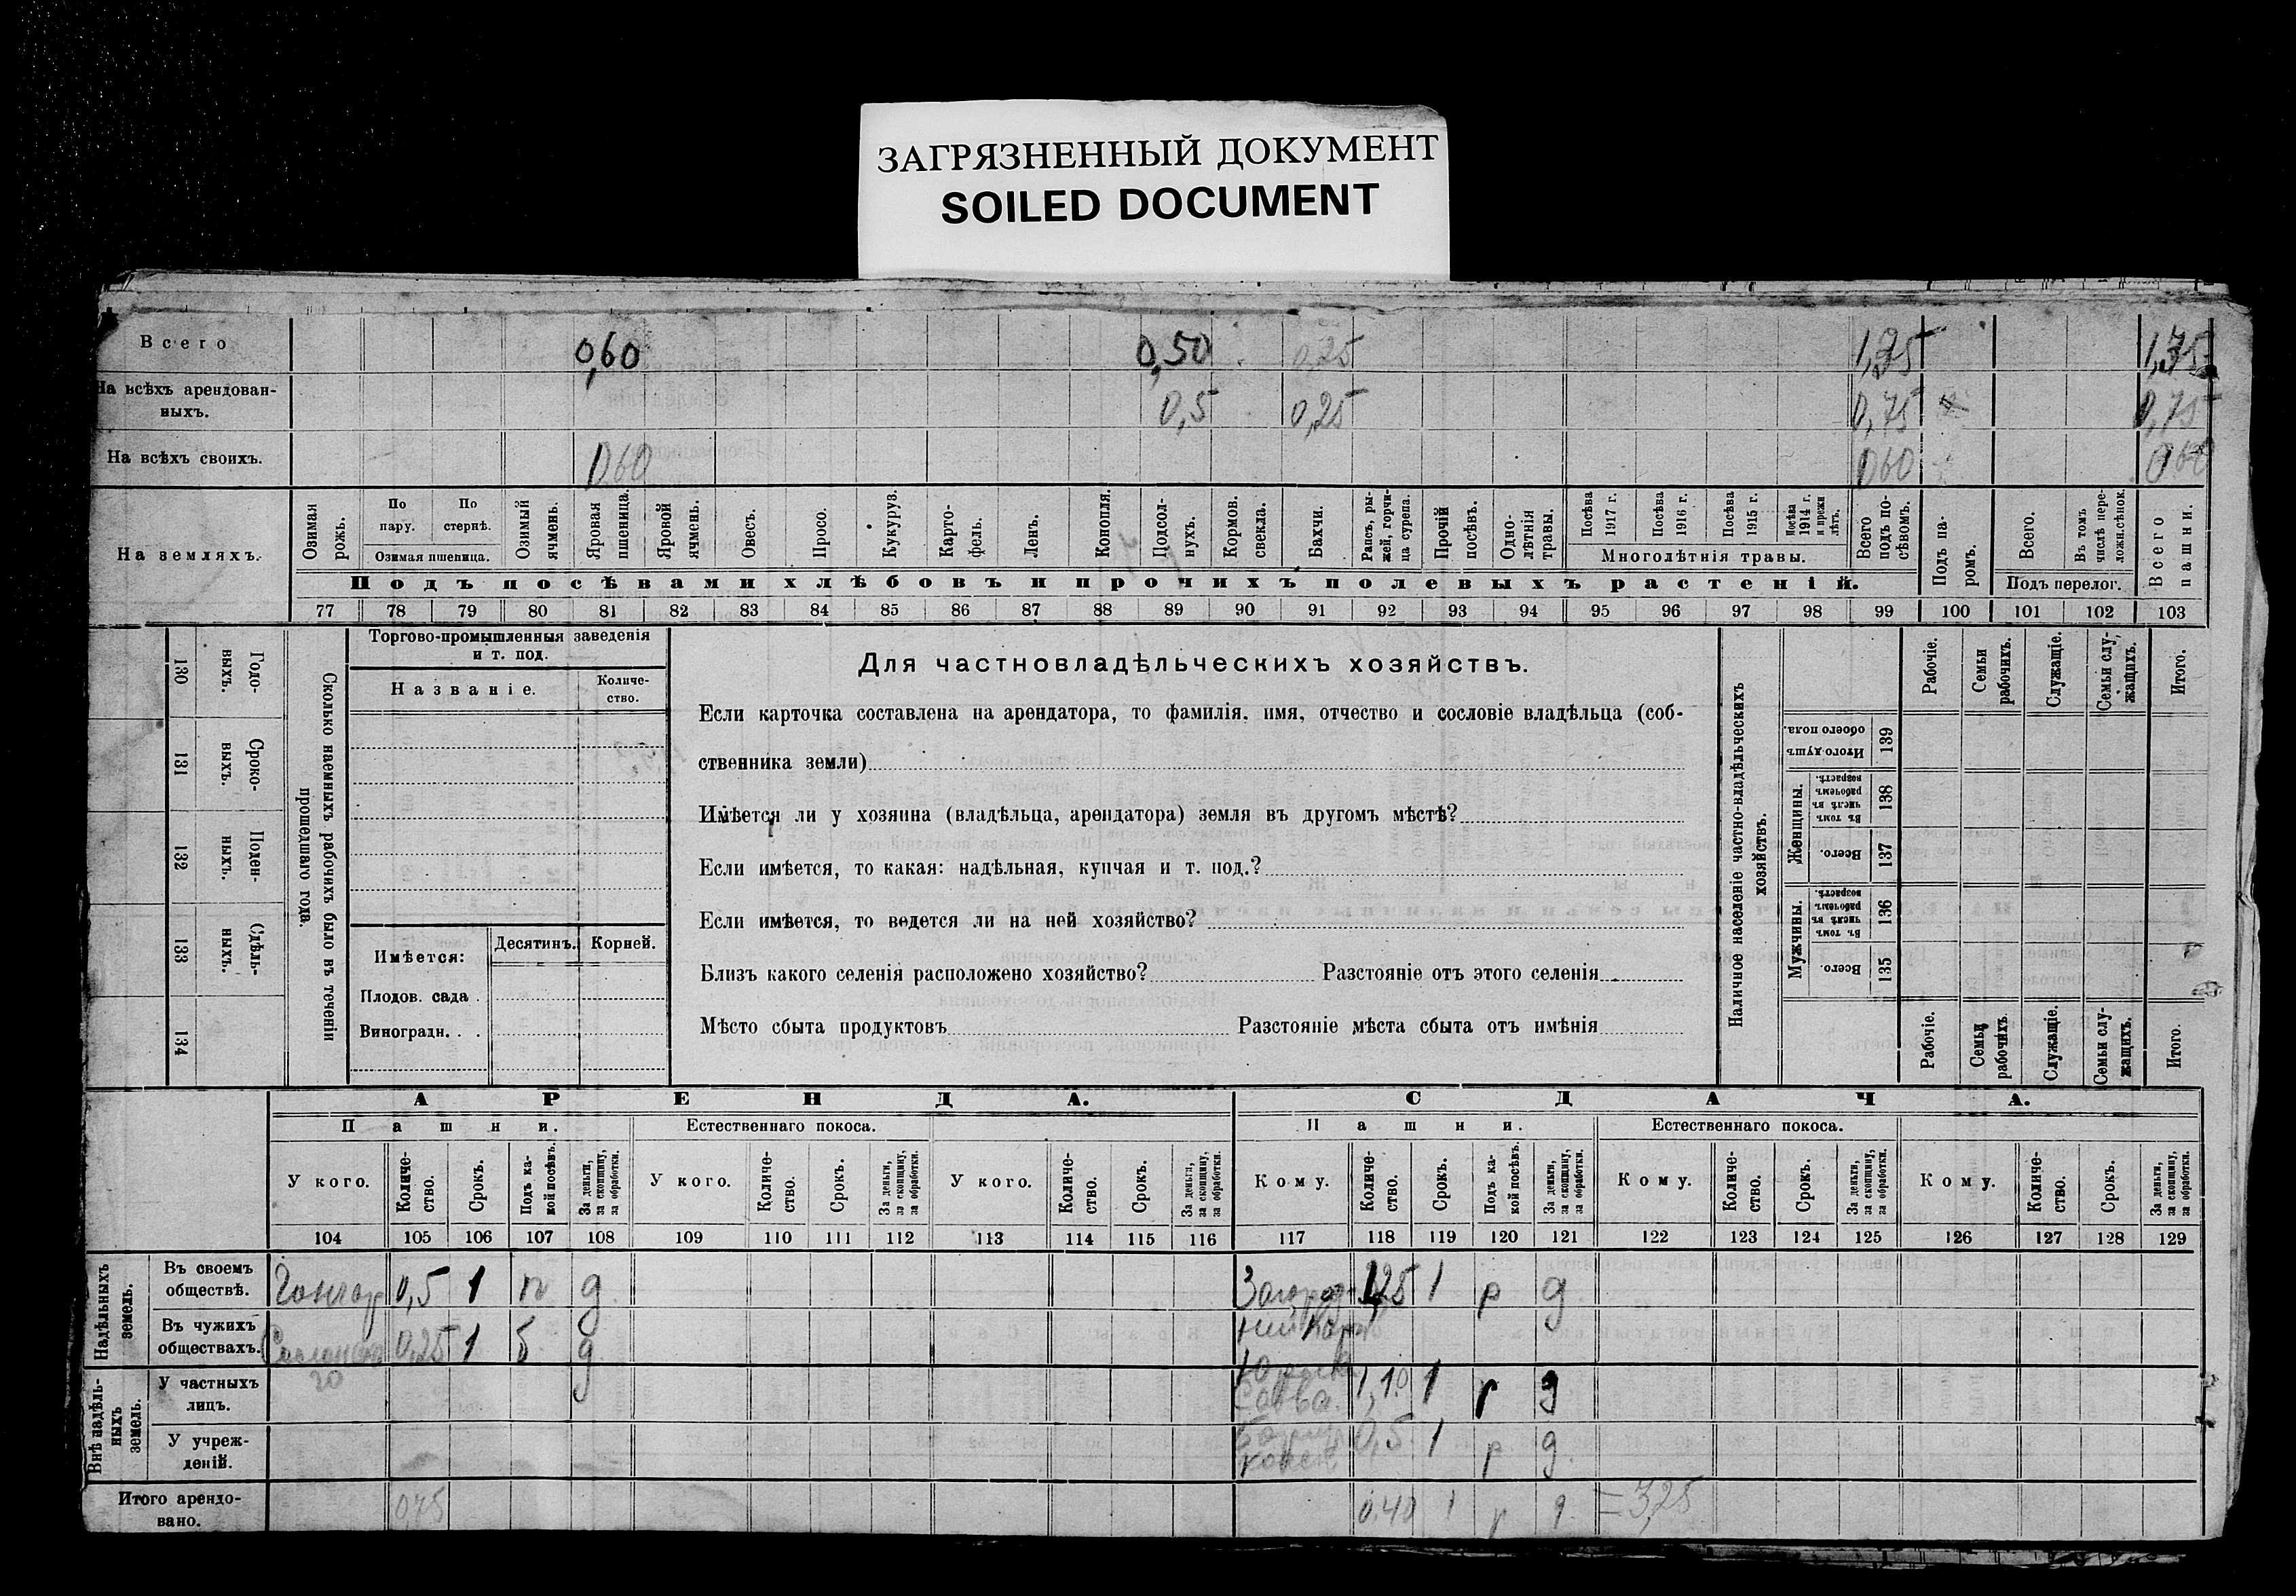 ЗАГРЯЗНЕННЫЙ ДОКУМЕНТ
SOILED DOCUMENT
Всего 0,60 0,50 0,25 1,35 1,35
На всѣхъ арендован-
ныхъ. 0,5 0,25 0,75 0,75
На всѣхъ своихъ. 060 060 060
На земляхъ.
Озимая рожь.
По пару.
По стернѣ.
Озимая пшеница.
Озимый ячмень.
Яровая пшеница.
Яровой ячмень.
Овесъ.
Просо.
Кукуруз.
Карто-
фель.
Ленъ.
Конопля.
Подсол-
нухъ.
Кормов. свекла.
Бахчи.
Рапсъ, ры-
жей, горчи-
ца сурепа.
Прочій посѣвъ.
Одно-
лѣтнія травы.
Посѣва 1917 г.
Посѣва 1916 г.
Посѣва 1915 г.
Посѣва 1914 г. и прежн лѣтъ.
Многолѣтнія травы.
Всего подъ по-
сѣвомъ.
Подъ па-
ромъ.
Всего.
Въ томъ числѣ пере-
ложн.сѣнок.
Подъ перелог.
Всего пашни.
Подъ посѣвами хлѣбовъ и прочихъ полевыхъ растеній.
77 78 79 80 81 82 83 84 85 86 87 88 89 90 91 92 93 94 95 96 97 98 99 100 101 102 103
130 Годо-
выхъ.
131 Сроко-
выхъ.
132 Поден-
ныхъ.
133 Сдѣль-
ныхъ.
134
Сколько наемныхъ рабочихъ было въ теченіи
прошедшаго года.
Торгово-промышленныя заведенія
и т. под.
Названіе.
Количе-
ство.
Имѣется:
Десятинъ.
Корней.
Плодов. сада .
Виноградн. . .
Для частновладѣльческихъ хозяйствъ.
Если карточка составлена на арендатора, то фамилія, имя, отчество и сословіе владѣльца (соб-
ственника земли)
Имѣется ли у хозяина (владѣльца, арендатора) земля въ другомъ мѣстѣ?
Если имѣется, то какая: надѣльная, купчая и т. под.?
Если имѣется, то ведется ли на ней хозяйство?
Близъ какого селенія расположено хозяйство? Разстояніе отъ этого селенія
Мѣсто сбыта продуктовъ Разстояніе мѣста сбыта отъ имѣнія
Наличное населеніе частно-владѣльческихъ
хозяйствъ.
Рабочіе.
Семьи рабочихъ.
Служащіе.
Семьи слу-
жащихъ.
Итого.
Итого душъ обоего пола. 139
Женщины.
Въ томъ числѣ въ рабочемъ возрастѣ. 138
Всего. 137
Мужчины.
Въ томъ числѣ въ рабочемъ возрастѣ. 136
Всего. 135
Рабочіе.
Семьи рабочихъ.
Служащіе.
Семьи слу-
жащихъ.
Итого.
АРЕНДА. СДАЧА.
Пашни. Естественнаго покоса. Пашни. Естественнаго покоса.
У кого.
Количе-
ство.
Срокъ.
Подъ ка-
кой посѣвъ.
За деньги,
за скопщину,
за обработки.
У кого.
Количе-
ство.
Срокъ.
За деньги,
за скопщину,
за обработки.
У кого.
Количе-
ство.
Срокъ.
За деньги,
за скопщину,
за обработки.
Кому.
Количе-
ство.
Срокъ.
Подъ ка-
кой посѣвъ.
За деньги,
за скопщину,
за обработки.
Кому.
Количе-
ство.
Срокъ.
За деньги,
за скопщину,
за обработки.
Кому.
Количе-
ство.
Срокъ.
За деньги,
за скопщину,
за обработки.
104 105 106 107 108 109 110 111 112 113 114 115 116 117 118 119 120 121 122 123 124 125 126 127 128 129
Надѣльныхъ
земель.
Въ своемъ
обществѣ. 0,5 1 п д. 1,25 1 р д
Въ чужихъ
обществахъ. 0,25 1 б д
Внѣ надѣль-
ныхъ
земель.
У частныхъ
лицъ. 1,10 1 р д
У учреж-
деній. 0,5 1 р д.
Итого арендо-
вано. 0,75 0,40 1 р д. = 3,25